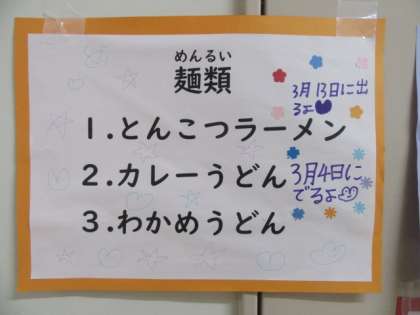 めんるい
麺類
1.とんこつラーメン
3月13日に出
るよ
2.カレーうどん
3月4日に
でるよ
3.わかめうどん